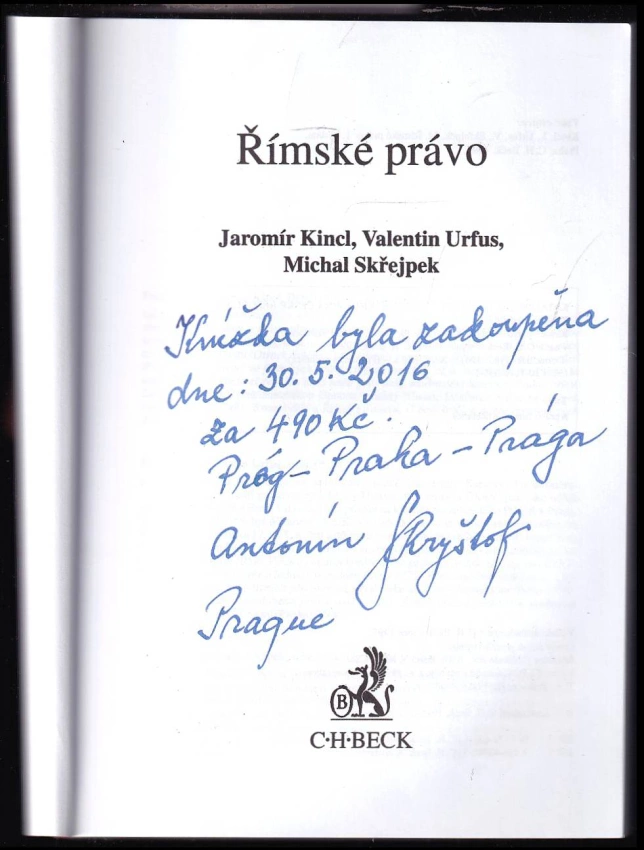 Římské právo
Jaromír Kincl, Valentin Urfus,
Michal Skřejpek
Knížka byla zakoupena
dne: 30. 5. 2016
za 490 Kč.
Próg - Praha - Prága
Antonín Kryštof
Prague
B
C·H·BECK